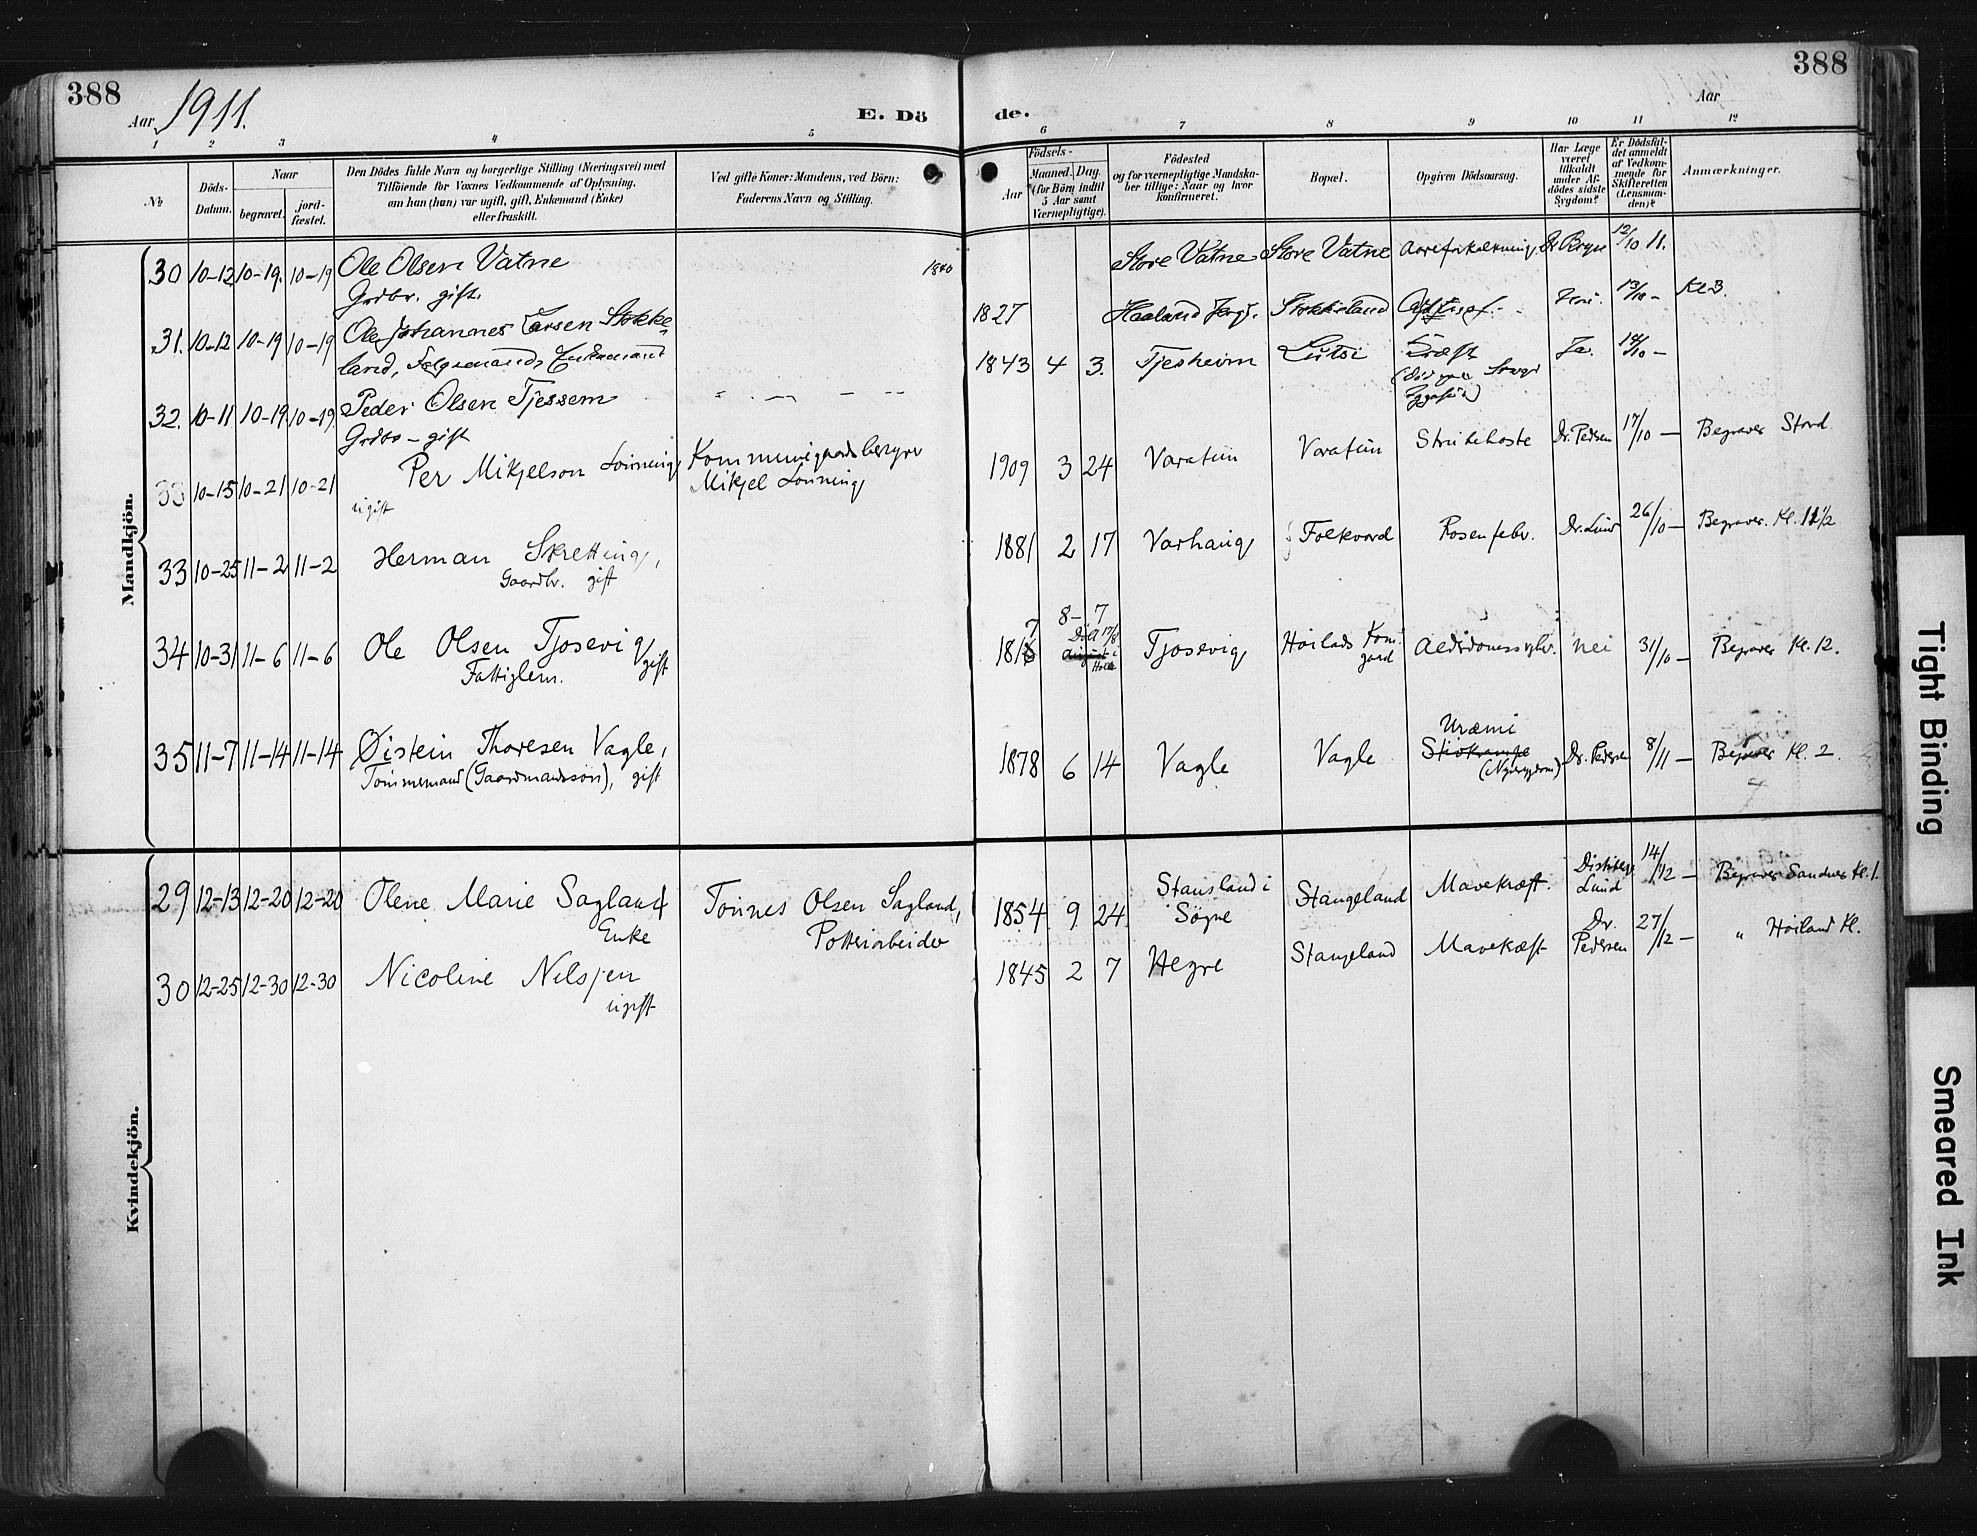 388
388
Aar 1911.
E. Dö
de.
Aar
1 2 3 4 5 6 7 8 9 10 11 12
№
Döds-
Datum.
Naar
begravet.
jord-
fæstet.
Den Dödes fulde Navn og borgerlige Stilling (Næringsvei) med
Tilföiende for Voxnes Vedkommende af Oplysning,
om han (hun) var ugift, gift, Enkemand (Enke)
eller fraskilt.
Ved gifte Koner: Mandens, ved Börn:
Faderens Navn og Stilling.
Födsels-
Aar
Maaned. Dag.
(for Börn indtil
5 Aar samt
Værnepligtige).
Födested
og for værnepligtige Mandska-
ber tillige: Naar og hvor
konfirmeret.
Bopæl.
Opgiven Dödsaarsag.
Har Læge
været
tilkaldt
under Af-
dödes sidste
Sygdom?
Er Dödsfal-
det anmeldt
af Vedkom-
mende for
Skifteretten
(Lensman-
den)?
Anmærkninger.
Mandkjön.
30 10-12 10-19. 10-19 Ole Olsen Vatne 1840 Store Vatne Store Vatne Aareforkalkning 12/10 11.
Grdbr. gift.
31. 10-12 10-19 10-19 Ole Johannes Larsen Stokke- 1827 Haaland Stokkeland 13/10 -
land, Enkemand
32. 10-11 10-19 10-19 Peder Olsen Tjessem 1843 4 3. Tjesheim Lutsi Kræft Ja. 14/10 -
Grdbr - gift
33 10-15 10-21 10-21 Per Mikjelson Lönning Kommunegaardsbestyrer 1909 3 24 Varatun Varatun Strubehoste Dr. Pedersen 17/10 - Begraves Stord
ugift Mikjel Lönning
33 10-25 11-2 11-2 Herman Skretting, 1881 2 17 Varhaug Folkvord Rosenfeber. Dr. Lund 26/10 - Begraves. Kl. 11 1/2
Gaardbr. gift
8- 7
34 10-31 11-6 11-6 Ole Olsen Tjosevig gift 1817 Tjosevig Höilands Kom. gaard nei 31/10 - Begraves Kl. 12.
Fattiglem.
35 11-7 11-14 11-14 Øistein Thoresen Vagle, 1878 6 14 Vagle Vagle Uræmi Stivkrampe Dr. Pedersen 8/11 - Begraves Kl. 2
Tömmermand (Gaardmandssön), gift (Nyresygdom)
Kvindekjön.
29 12-13 12-20 12-20 Olene Marie Sagland Tönnes Olsen Sagland, 1854 9 24 Stausland i Søgne Stangeland Mavekræft. Distriktsl. Lund 14/12 - Begraves Sandnes Kl. 1.
Enke Potteriarbeider
30 12-25 12-30 12-30 Nicoline Nilsen 1845 2 7 Hegre Stangeland Mavekræft Dr. Pedersen 27/12 - " Höiland Kl.
ugift
Tight Binding
Smeared Ink